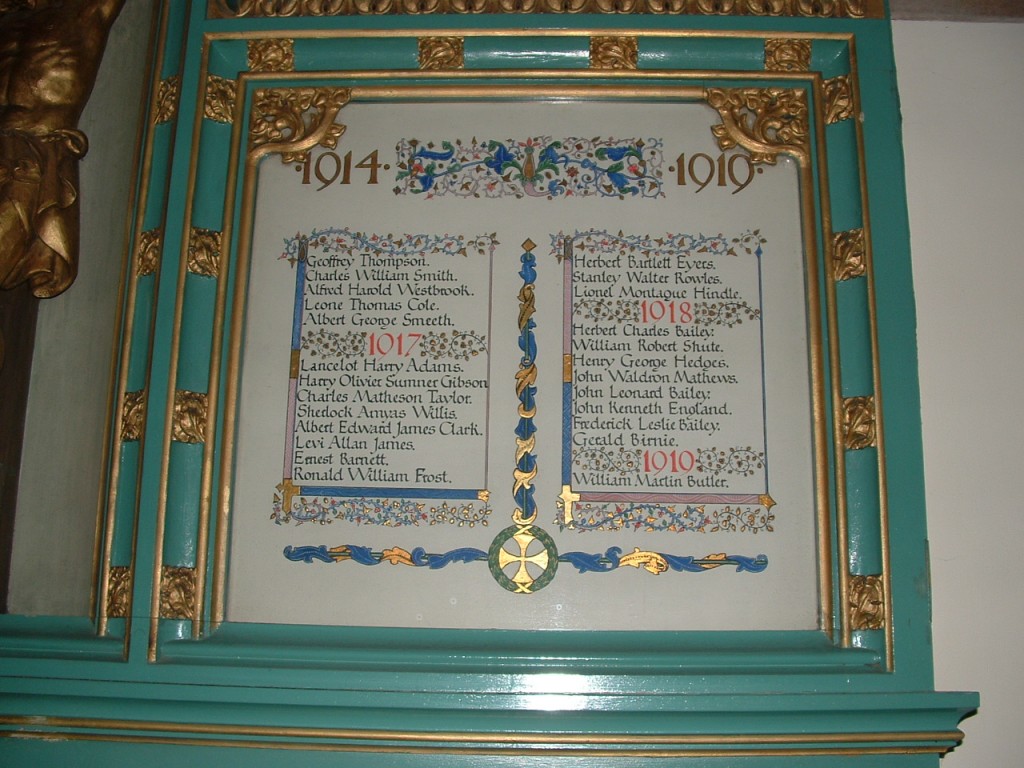 1914 · 1919
Geoffrey Thompson.
Charles William Smith.
Alfred Harold Westbrook.
Leone Thomas Cole.
Albert George Smeeth.
1917
Lancelot Harry Adams.
Harry Olivier Sumner Gibson
Charles Matheson Taylor.
Sherlock Amyas Willis.
Albert Edward James Clark.
Levi Allan James.
Ernest Barnett.
Ronald William Frost.
Herbert Bartlett Eyers.
Stanley Walter Rowles.
Lionel Montague Hindle.
1918
Herbert Charles Bailey.
William Robert Shute.
Henry George Hedges.
John Waldron Mathews.
John Leonard Bailey.
John Kenneth England.
Frederick Leslie Bailey.
Gerald Birnie.
1919
William Martin Butler.